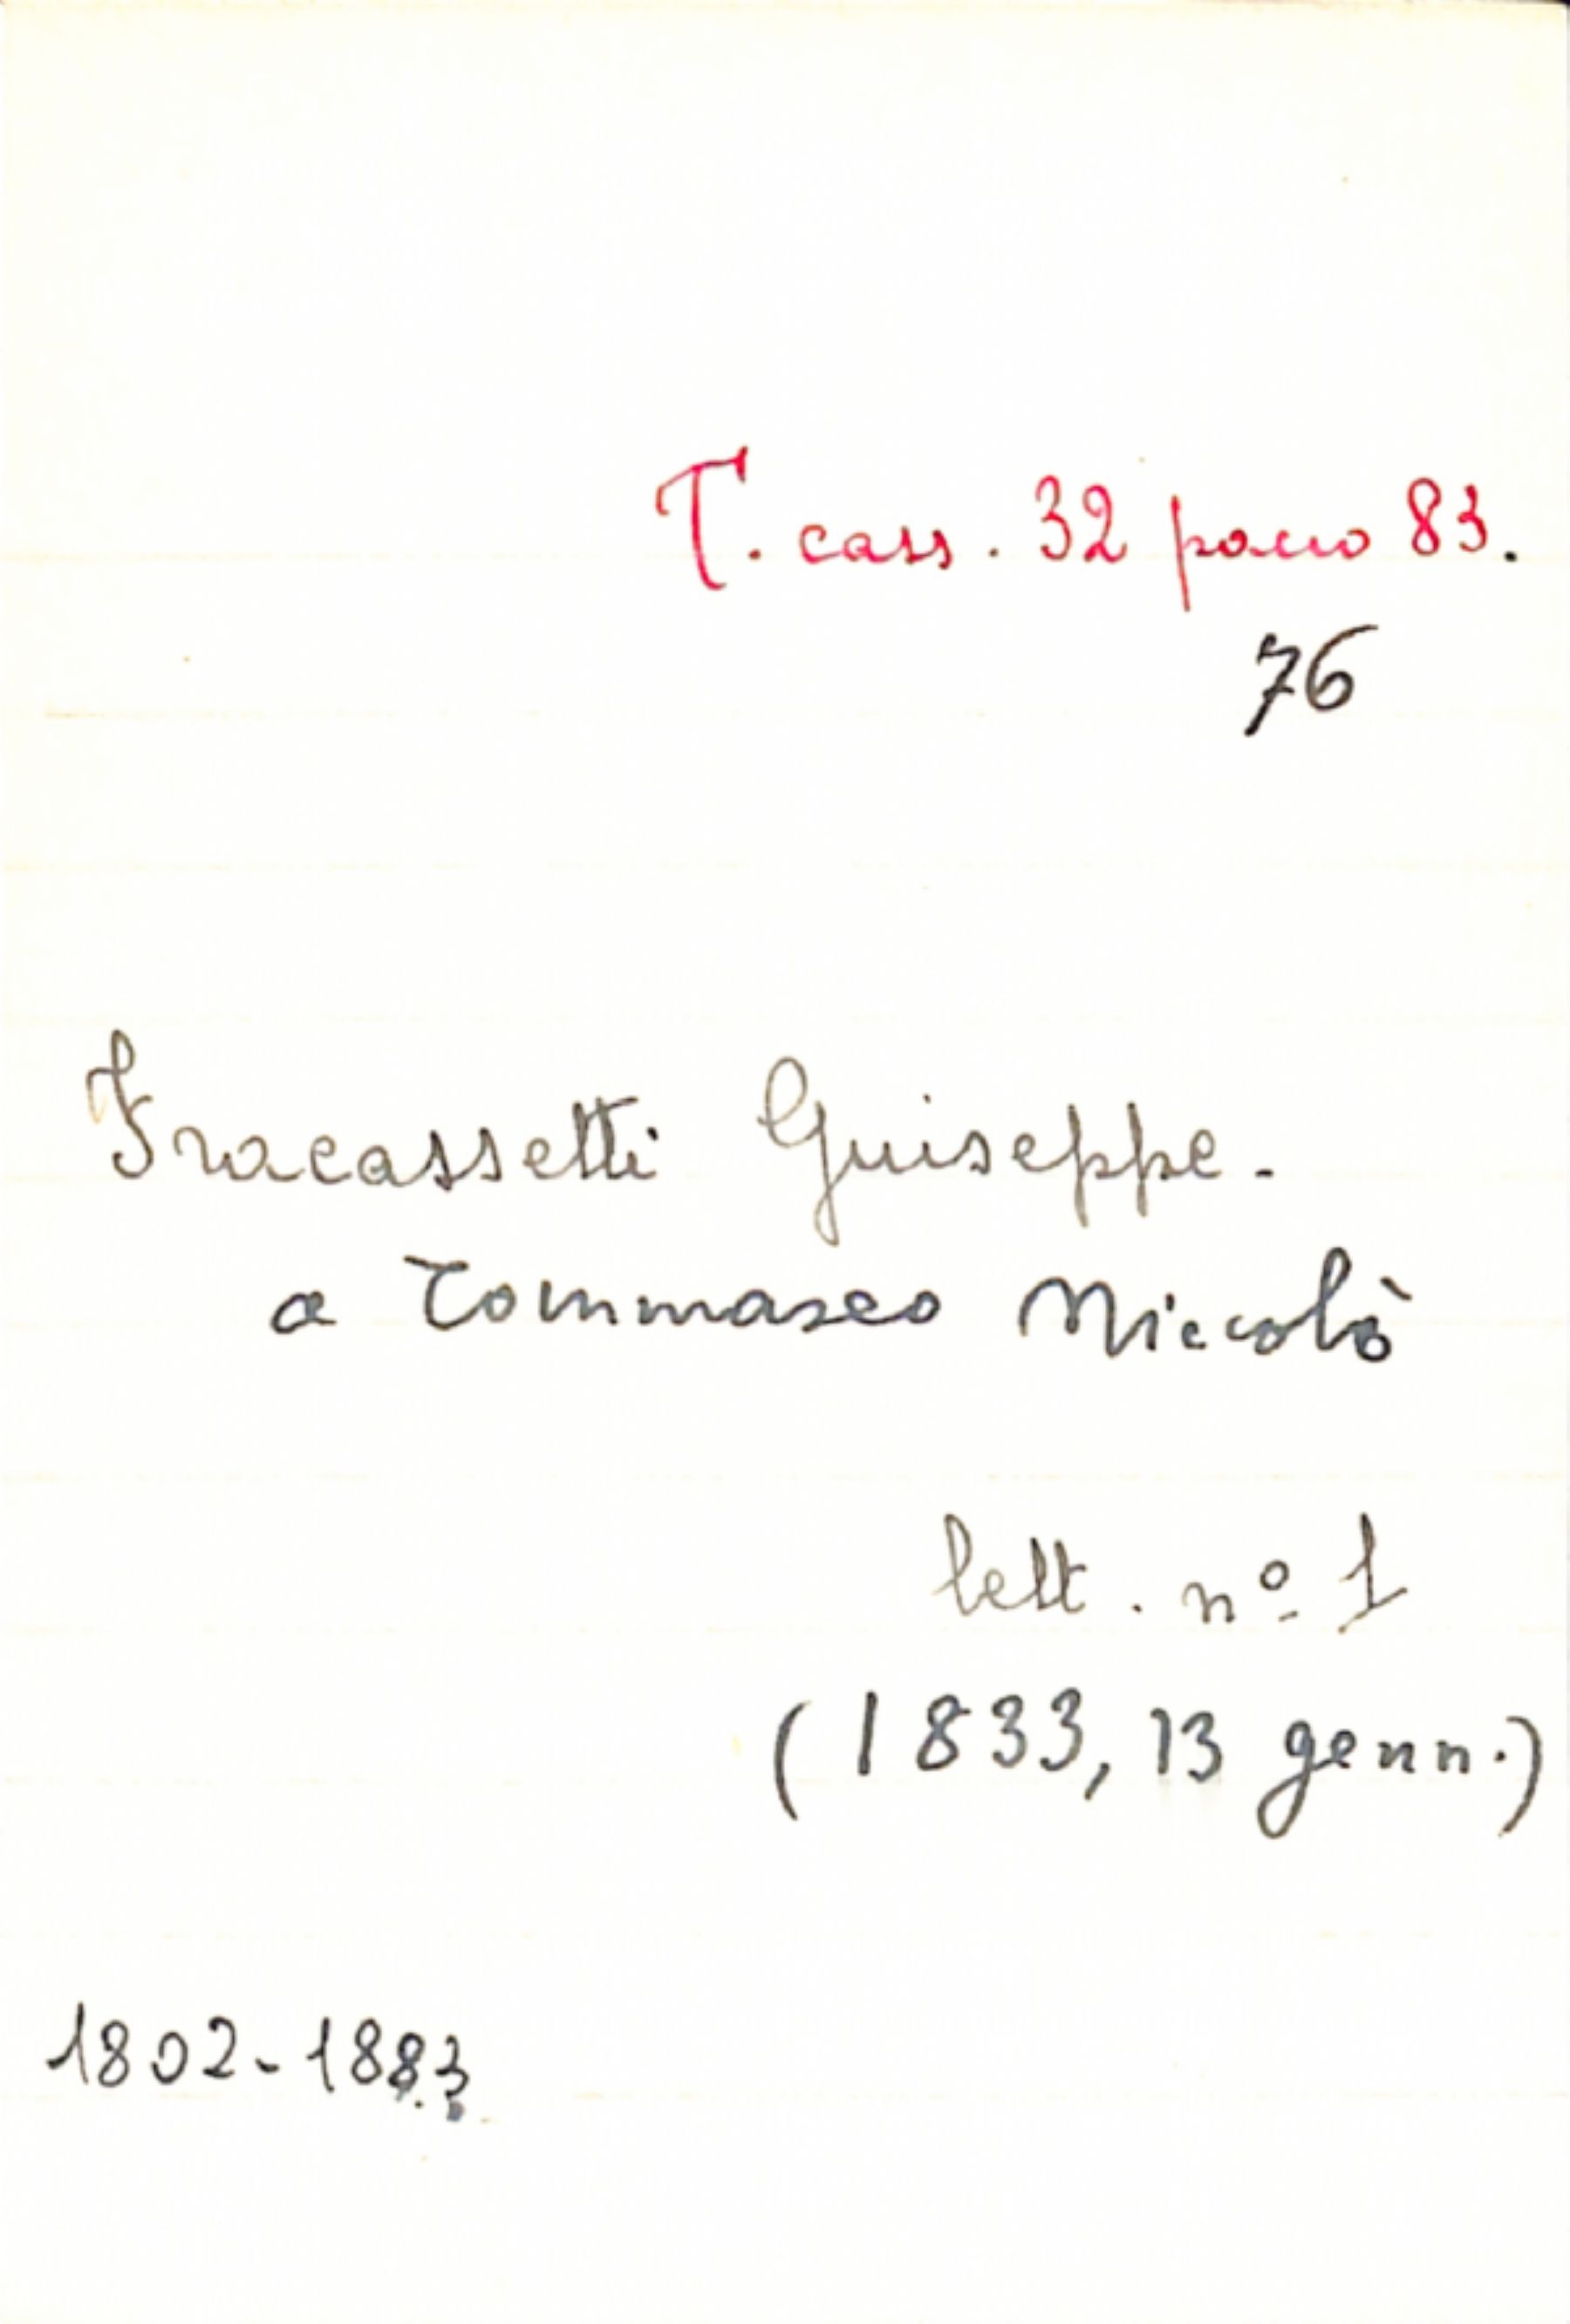 T. cass. 32 pacco 83.
76
Fracassetti Giuseppe.
a Tommaseo Niccolò
lett. nº 1
(1833, 13 genn.)
1802-1883